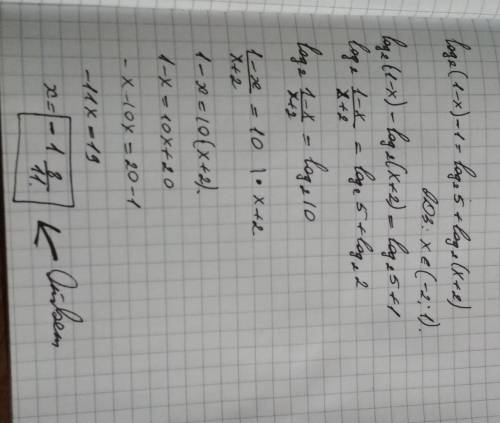 log₂(1-x)-1 = log₂5 + log₂(x+2)
ОДЗ: x∈(-2; 1).
log₂(1-x) - log₂(x+2) = log₂5 + 1
log₂ (1-x)/(x+2) = log₂5 + log₂2
log₂ (1-x)/(x+2) = log₂10
(1-x)/(x+2) = 10 | • x+2
1-x = 10(x+2).
1-x = 10x+20
-x-10x = 20-1
-11x = 19
x = -1 8/11. ← Ответ